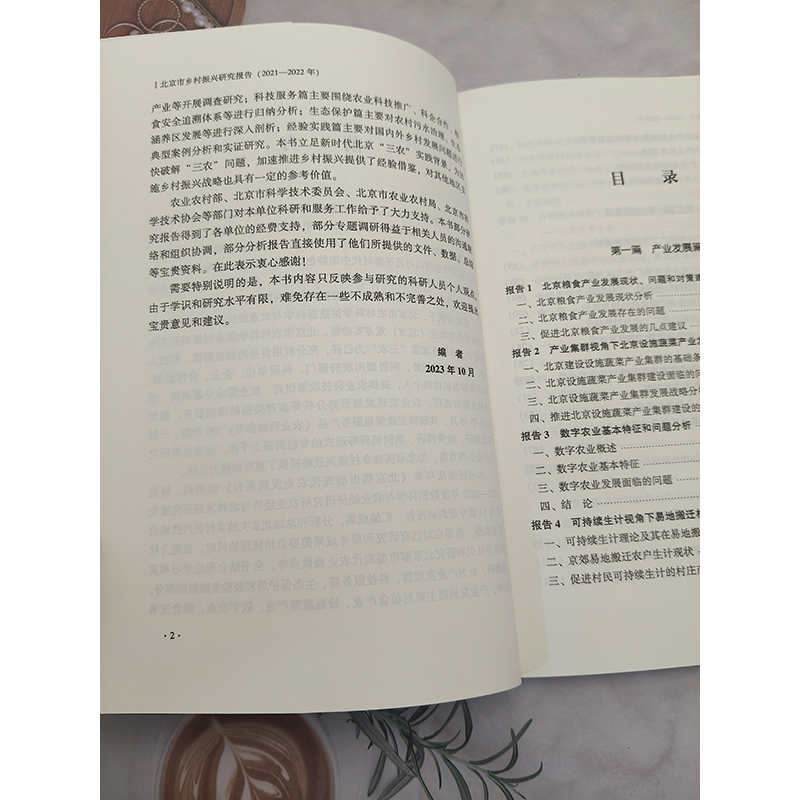 北京市乡村振兴研究报告（2021—2022年）
产业等开展调查研究；科技服务篇主要围绕农业科技推广、科企合作、粮
食安全追溯体系等进行归纳分析；生态保护篇主要对农村污水治理、生态
涵养区发展等进行深入剖析；经验实践篇主要对国内外乡村发展问题进行
典型案例分析和实证研究。本书立足新时代北京“三农”实践背景，为加
快破解“三农”问题，加速推进乡村振兴提供了经验借鉴，对其他地区实
施乡村振兴战略也具有一定的参考价值。
农业农村部、北京市科学技术委员会、北京市农业农村局、北京市科
学技术协会等部门对本单位科研和服务工作给予了大力支持。本书部分研
究报告得到了各单位的经费支持，部分专题调研得益于相关人员的沟通联
络和组织协调，部分分析报告直接使用了他们所提供的文件、数据、总结
等宝贵资料。在此表示衷心感谢！
需要特别说明的是，本书内容只反映参与研究的科研人员个人观点，
由于学识和研究水平有限，难免存在一些不成熟和不完善之处，欢迎提出
宝贵意见和建议。
编 者
2023年10月
·2·
目 录
第一篇 产业发展篇
报告1 北京粮食产业发展现状、问题和对策建
一、北京粮食产业发展现状分析
二、北京粮食产业发展存在的问题
三、促进北京粮食产业发展的几点建议
报告2 产业集群视角下北京设施蔬菜产业发
一、北京建设设施蔬菜产业集群的基础条
二、北京设施蔬菜产业集群建设面临的问
三、北京设施蔬菜产业集群发展战略分析
四、推进北京设施蔬菜产业集群建设的
报告3 数字农业基本特征和问题分析
一、数字农业概述
二、数字农业基本特征
三、数字农业发展面临的问题
四、结 论
报告4 可持续生计视角下易地搬迁村
一、可持续生计理论及其在易地搬
二、京郊易地搬迁农户生计现状
三、促进村民可持续生计的村庄产